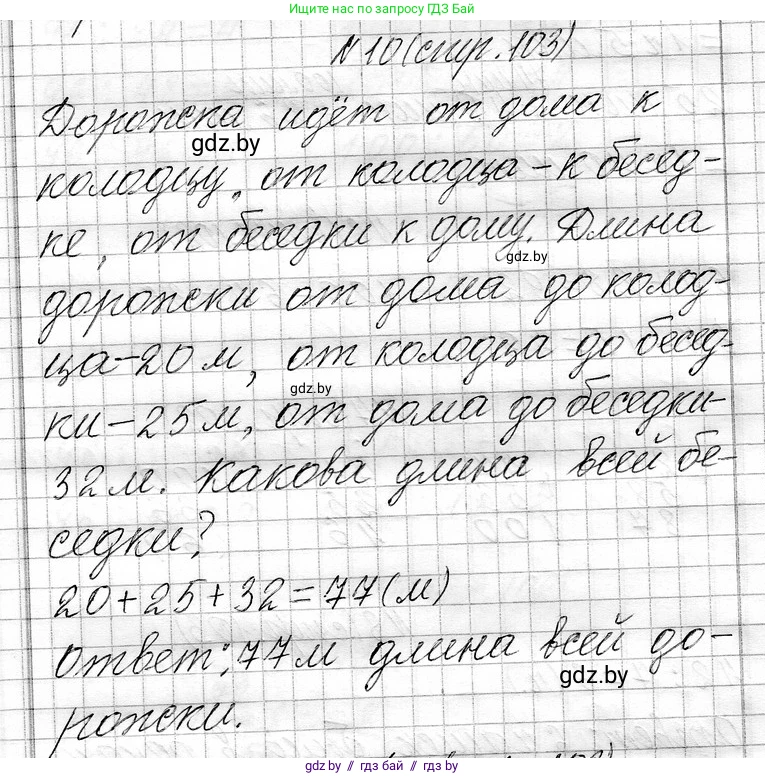 Ищите нас по запросу ГДЗ Бай
N 10 (стр. 103)
Дорожка идёт от дома к
gdz.by
колодцу, от колодца - к бесед-
ке, от беседки к дому. Длина
gdz.by
дорожки от дома до колод-
ца - 20 м, от колодца до бесед-
gdz.by
ки - 25 м, от дома до беседки -
32 м. Какова длина всей бе-
седки?
20 + 25 + 32 = 77 (м)
Ответ: 77 м длина всей до-
gdz.by
рожки.
gdz.by // гдз бай // гдз by